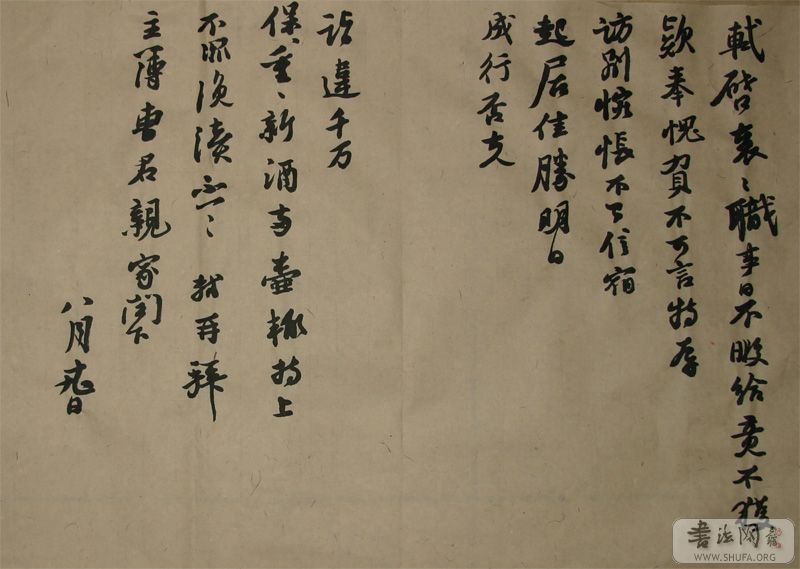 軾啓衰〻職事日不暇給竟不獲
款奉愧負不可言特辱
訪別惋悵不可信宿
起居佳勝明日
成行否文
詒違千万
保〻重〻新酒両壺輙持上
不罪浼瀆不一〻軾再拜
主簿曹君親家閣下
八月日
書法网
WWW.SHUFA.ORG